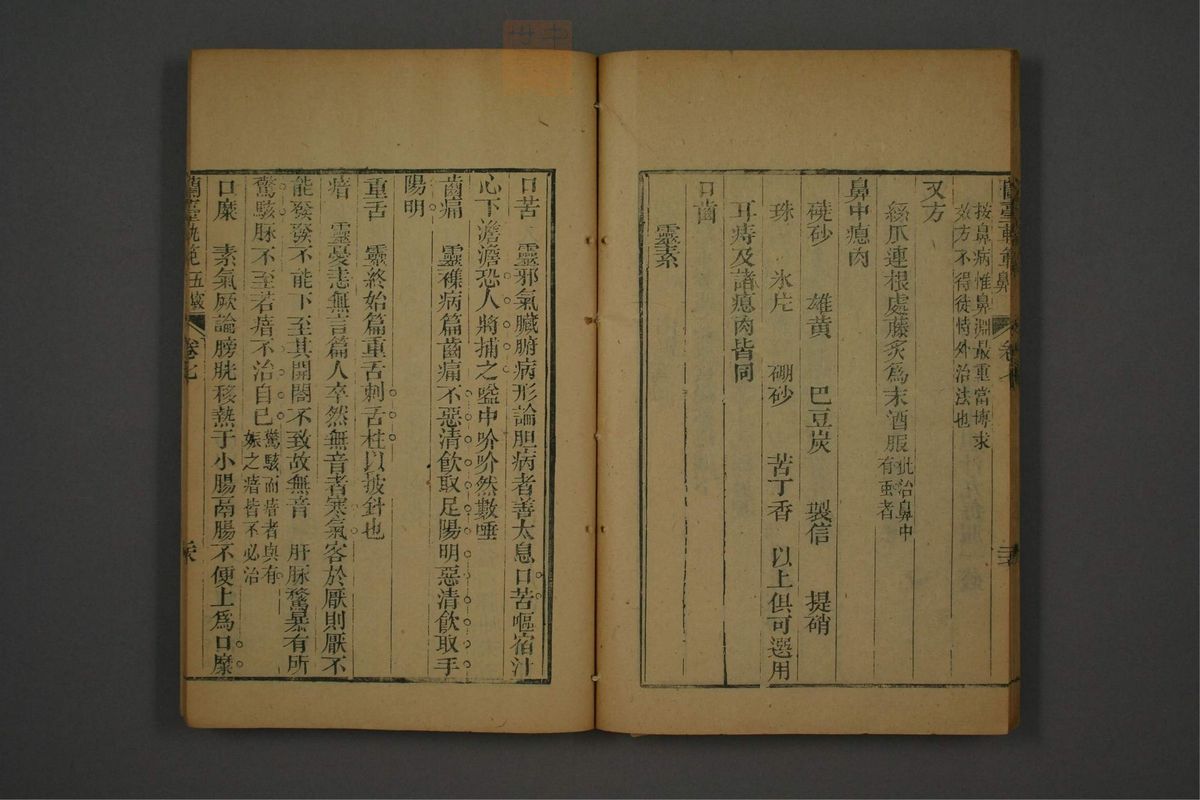 蘭臺軌範 鼻 卷七
按鼻病惟鼻淵最重當博求
效方不得徒恃外治法也
又方
絲爪連根處藤炙爲末酒服 此治鼻中
有䖝者
鼻中瘜肉
硇砂 雄黃 巴豆炭 製信 提硝
珠 氷片 硼砂 苦丁香 以上俱可選用
耳痔及諸瘜肉皆同
口齒
靈素
口苦 靈邪氣臟腑病形論膽病者善太息口苦嘔宿汁
心下澹澹恐人將捕之嗌中吤吤然數唾
齒痛 靈襍病篇齒痛不惡清飲取足陽明惡清飲取手
陽明
重舌 靈終始篇重舌刺舌柱以鈹針也
瘖 靈憂恚無言篇人卒然無音者寒氣客於厭則厭不
能發發不能下至其開闔不致故無音 肝脉騖暴有所
驚駭脉不至若瘖不治自已 驚駭而瘖者與有
娠之瘖皆不必治
口糜 素氣厥論膀胱移熱于小腸鬲腸不便上爲口糜
蘭臺軌範 卷七